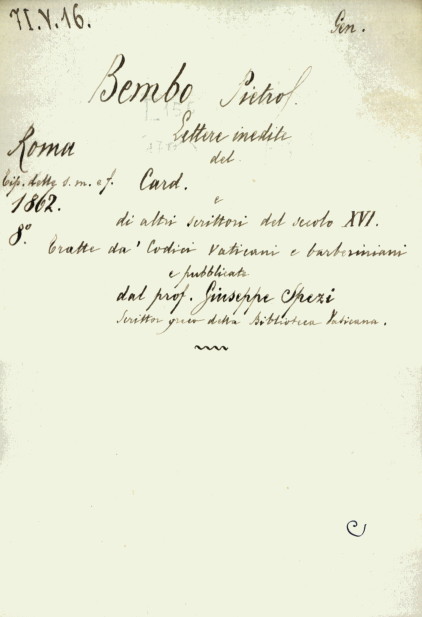 71.V.16.
Gen.
Bembo Pietro
Lettere inedite
del
Roma
Tip. delle s. m. e f.
Card.
1862.
e
di altri scrittori del secolo XVI.
8º
Tratte da' Codici Vaticani e barberiniani
e pubblicate
dal prof. Giuseppe Spezi
Scrittor greco della Biblioteca Vaticana.
C